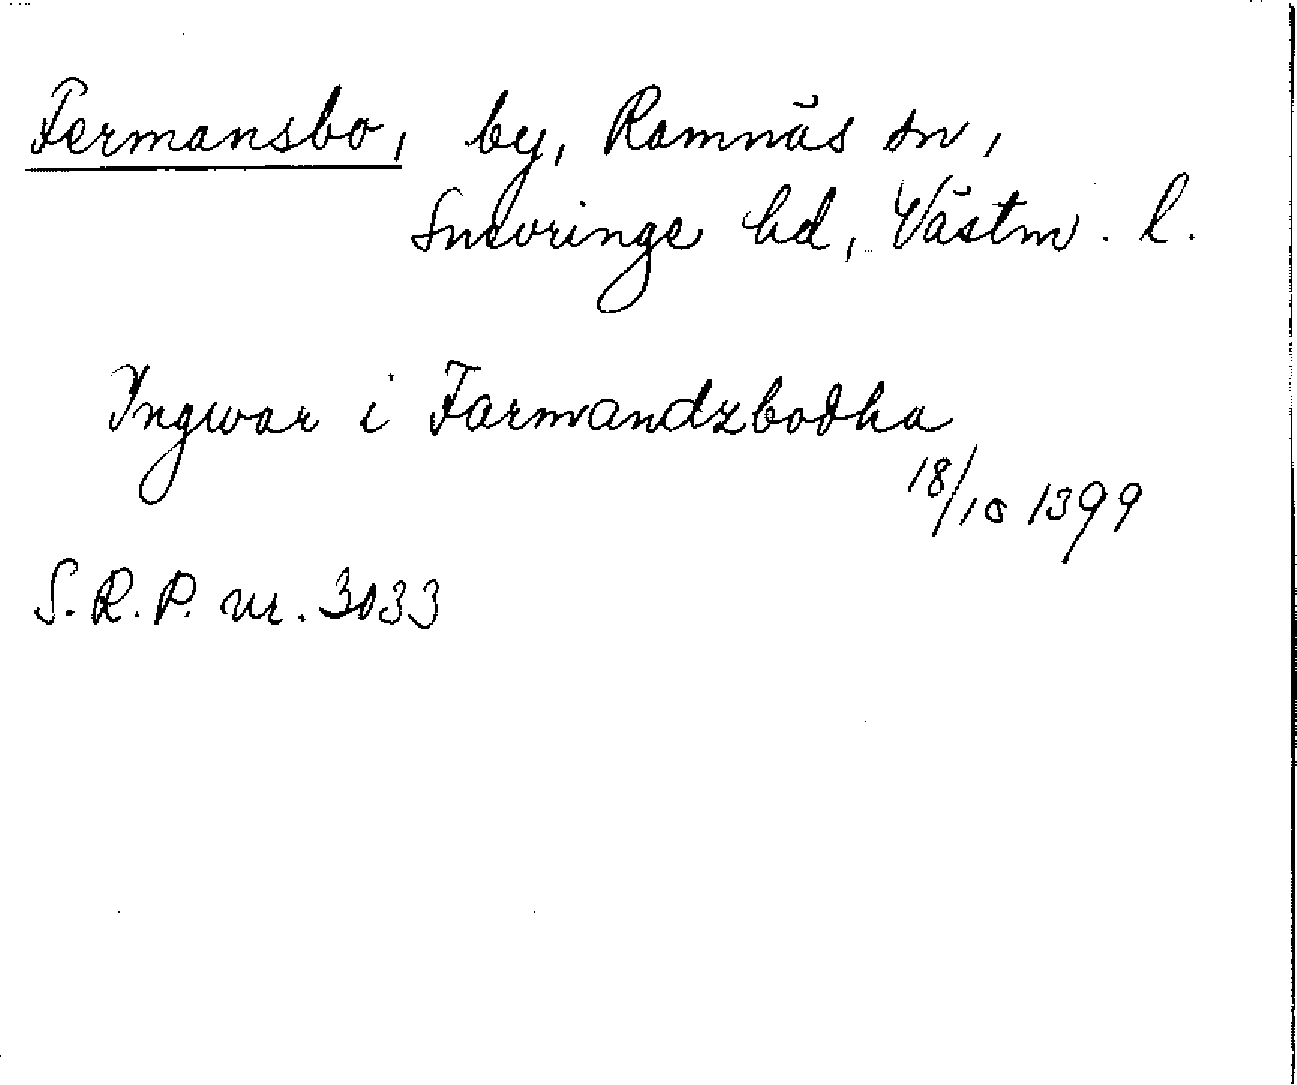 Fermansbo, by, Ramnäs sn,
Snevringe hd, Västm. l.
Ingwar i Farmandzbodha
18/10 1399
S. R. P. nr. 3033